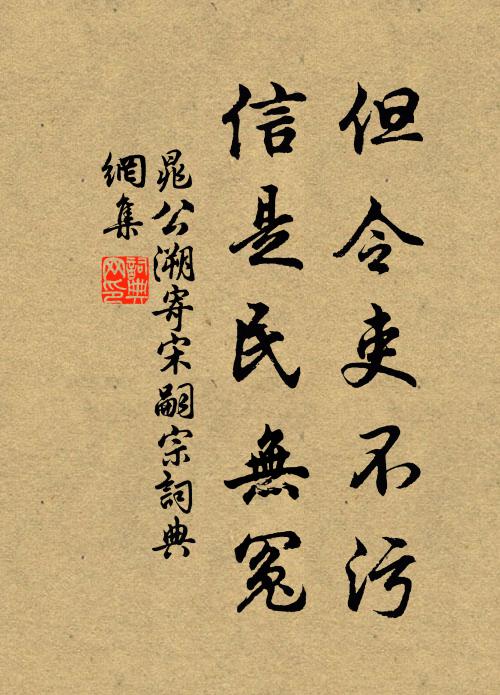 但令吏不污
信是民無冤
晁公溯寄宋嗣宗詞典
網集
詞典
网印